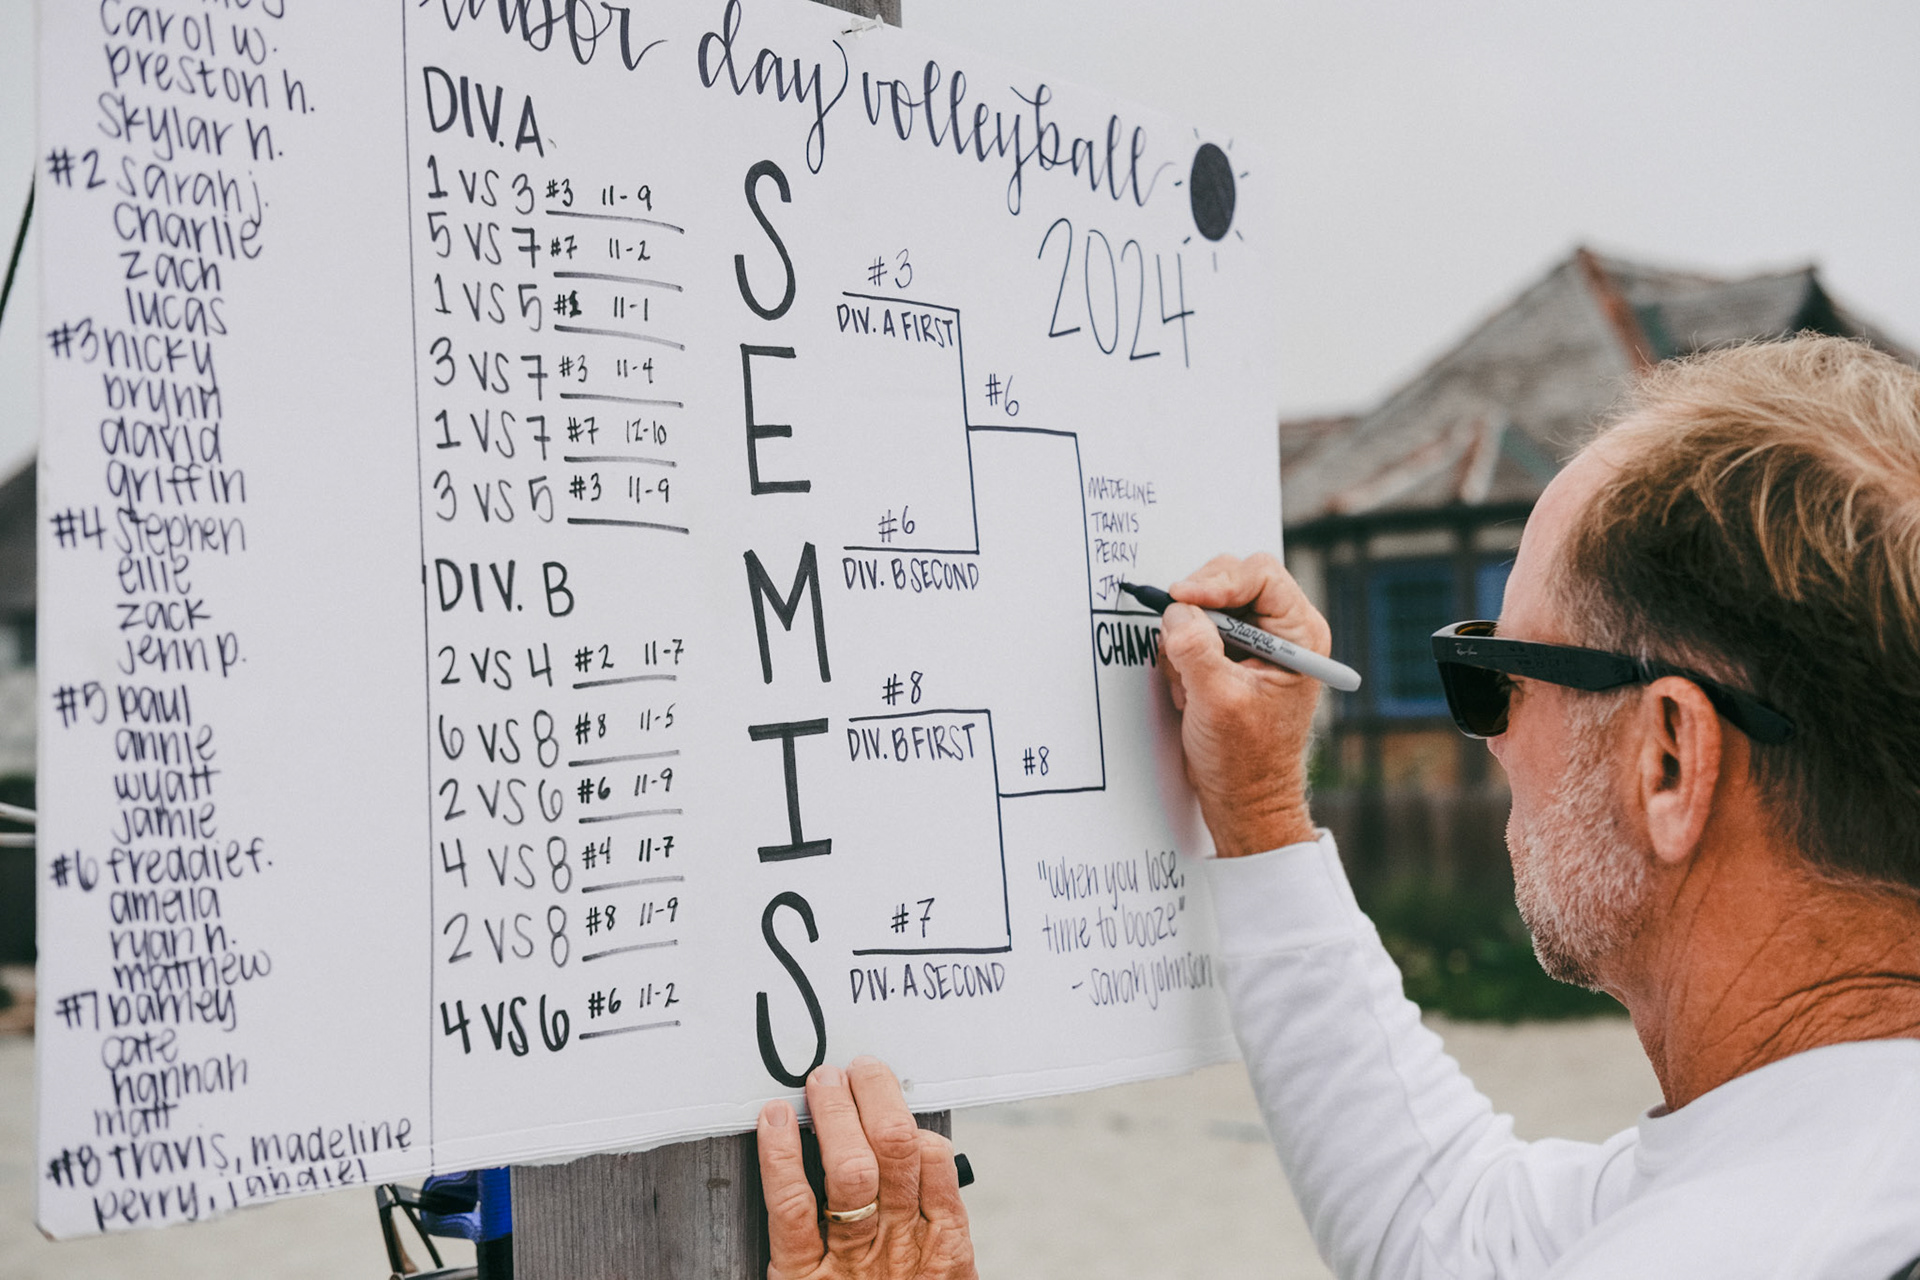 carol w.
preston h.
skylar n.
#2 sarah j.
charlie
zach
lucas
#3 nicky
brynn
david
griffin
#4 stephen
ellie
zack
jenn p.
#5 paul
annie
wyatt
jamie
#6 freddie f.
amelia
ryan h.
matthew
#7 barney
cate
hannah
matt
#8 travis, madeline
perry,
labor day volleyball
2024
DIV. A
1 VS 3 #3 11-9
5 VS 7 #7 11-2
1 VS 5 #1 11-1
3 VS 7 #3 11-4
1 VS 7 #7 12-10
3 VS 5 #3 11-9
DIV. B
2 VS 4 #2 11-7
6 VS 8 #8 11-5
2 VS 6 #6 11-9
4 VS 8 #4 11-7
2 VS 8 #8 11-9
4 VS 6 #6 11-2
SEMIS
#3
DIV. A FIRST
#6
#6
DIV. B SECOND
#8
DIV. B FIRST
#8
#7
DIV. A SECOND
MADELINE
TRAVIS
PERRY
JAY
CHAMP
"when you lose,
time to booze"
- sarah johnson
Sharpie
Ray-Ban